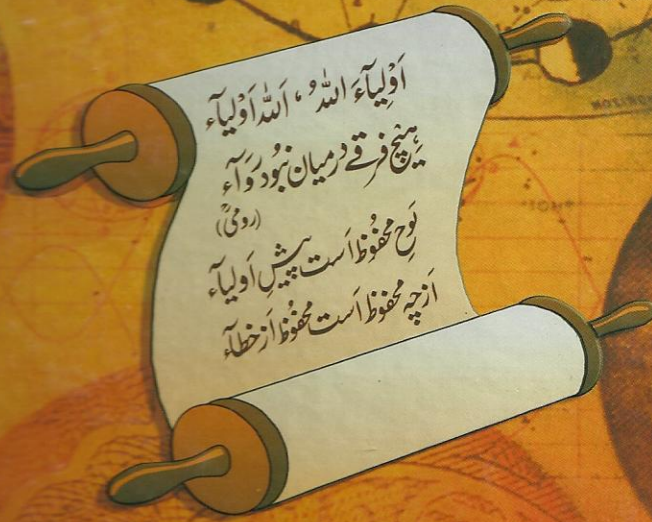 اَوْلِیآءَ اللہُ ، اَللہ اَوْلیآء
ہیْچ فرقے درمیان نبُود رَوَآء
(رومیؒ)
لَوحِ محفُوظ اَست پیشِ اَولیآء
اَزچہ محفوظ اَست محفُوظ اَز خطآء